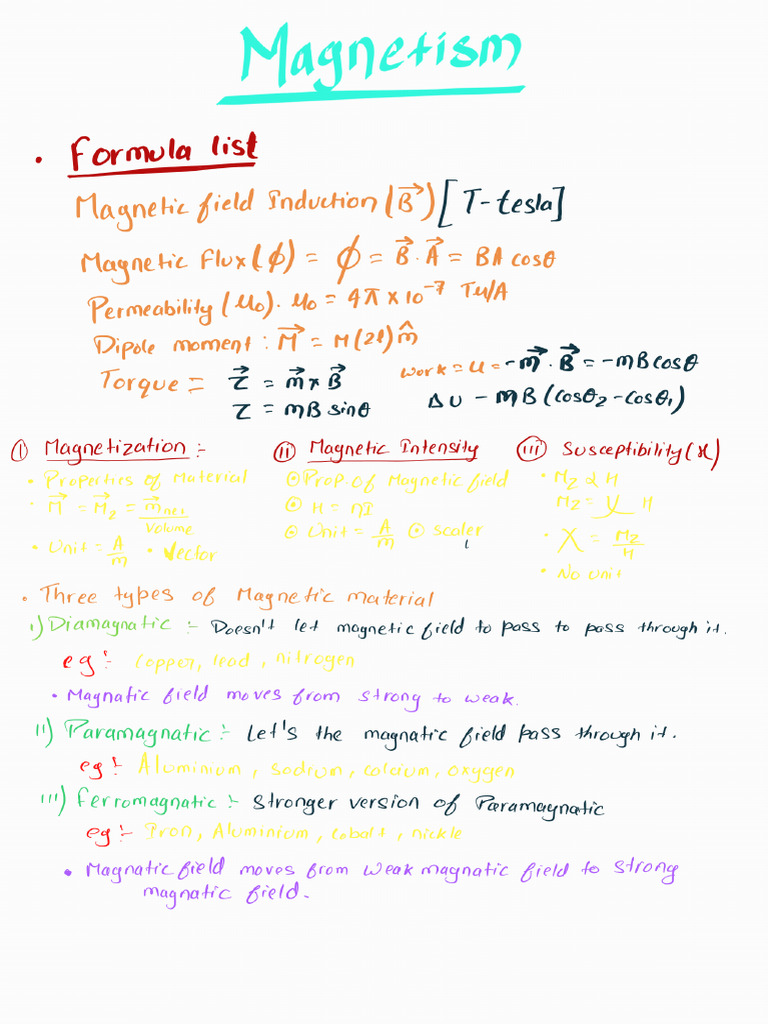 Magnetism
• Formula list
Magnetic field Induction (B⃗) [T-tesla]
Magnetic Flux(ϕ) = ϕ = B⃗ · A⃗ = BA cosθ
Permeability (μ₀). μ₀ = 4π × 10⁻⁷ Tμ/A
Dipole moment : M⃗ = M(2l) m̂
Torque = τ⃗ = m⃗ × B⃗
τ = mB sinθ
work = u = -m⃗ · B⃗ = -mB cosθ
ΔU - MB (cosθ₂ - cosθ₁)
(I) Magnetization :-
• Properties of Material
• M⃗ = M⃗z = m⃗net / volume
• Unit = A/m • Vector
(II) Magnetic Intensity
⊙ Prop. of Magnetic field
⊙ H = nI
⊙ Unit = A/m ⊙ scaler
(III) Susceptibility (χ)
• Mz α H
Mz = χ H
• χ = Mz/H
• No unit
• Three types of Magnetic material
i) Diamagnatic :- Doesn't let magnetic field to pass to pass through it.
eg :- Copper, lead, nitrogen
• Magnatic field moves from strong to weak.
II) Paramagnatic :- Let's the magnatic field pass through it.
eg :- Aluminium, sodium, calcium, oxygen
III) ferromagnatic :- Stronger version of Paramagnatic
eg :- Iron, Aluminium, cobalt, nickle
• Magnatic field moves from weak magnatic field to strong
magnatic field.